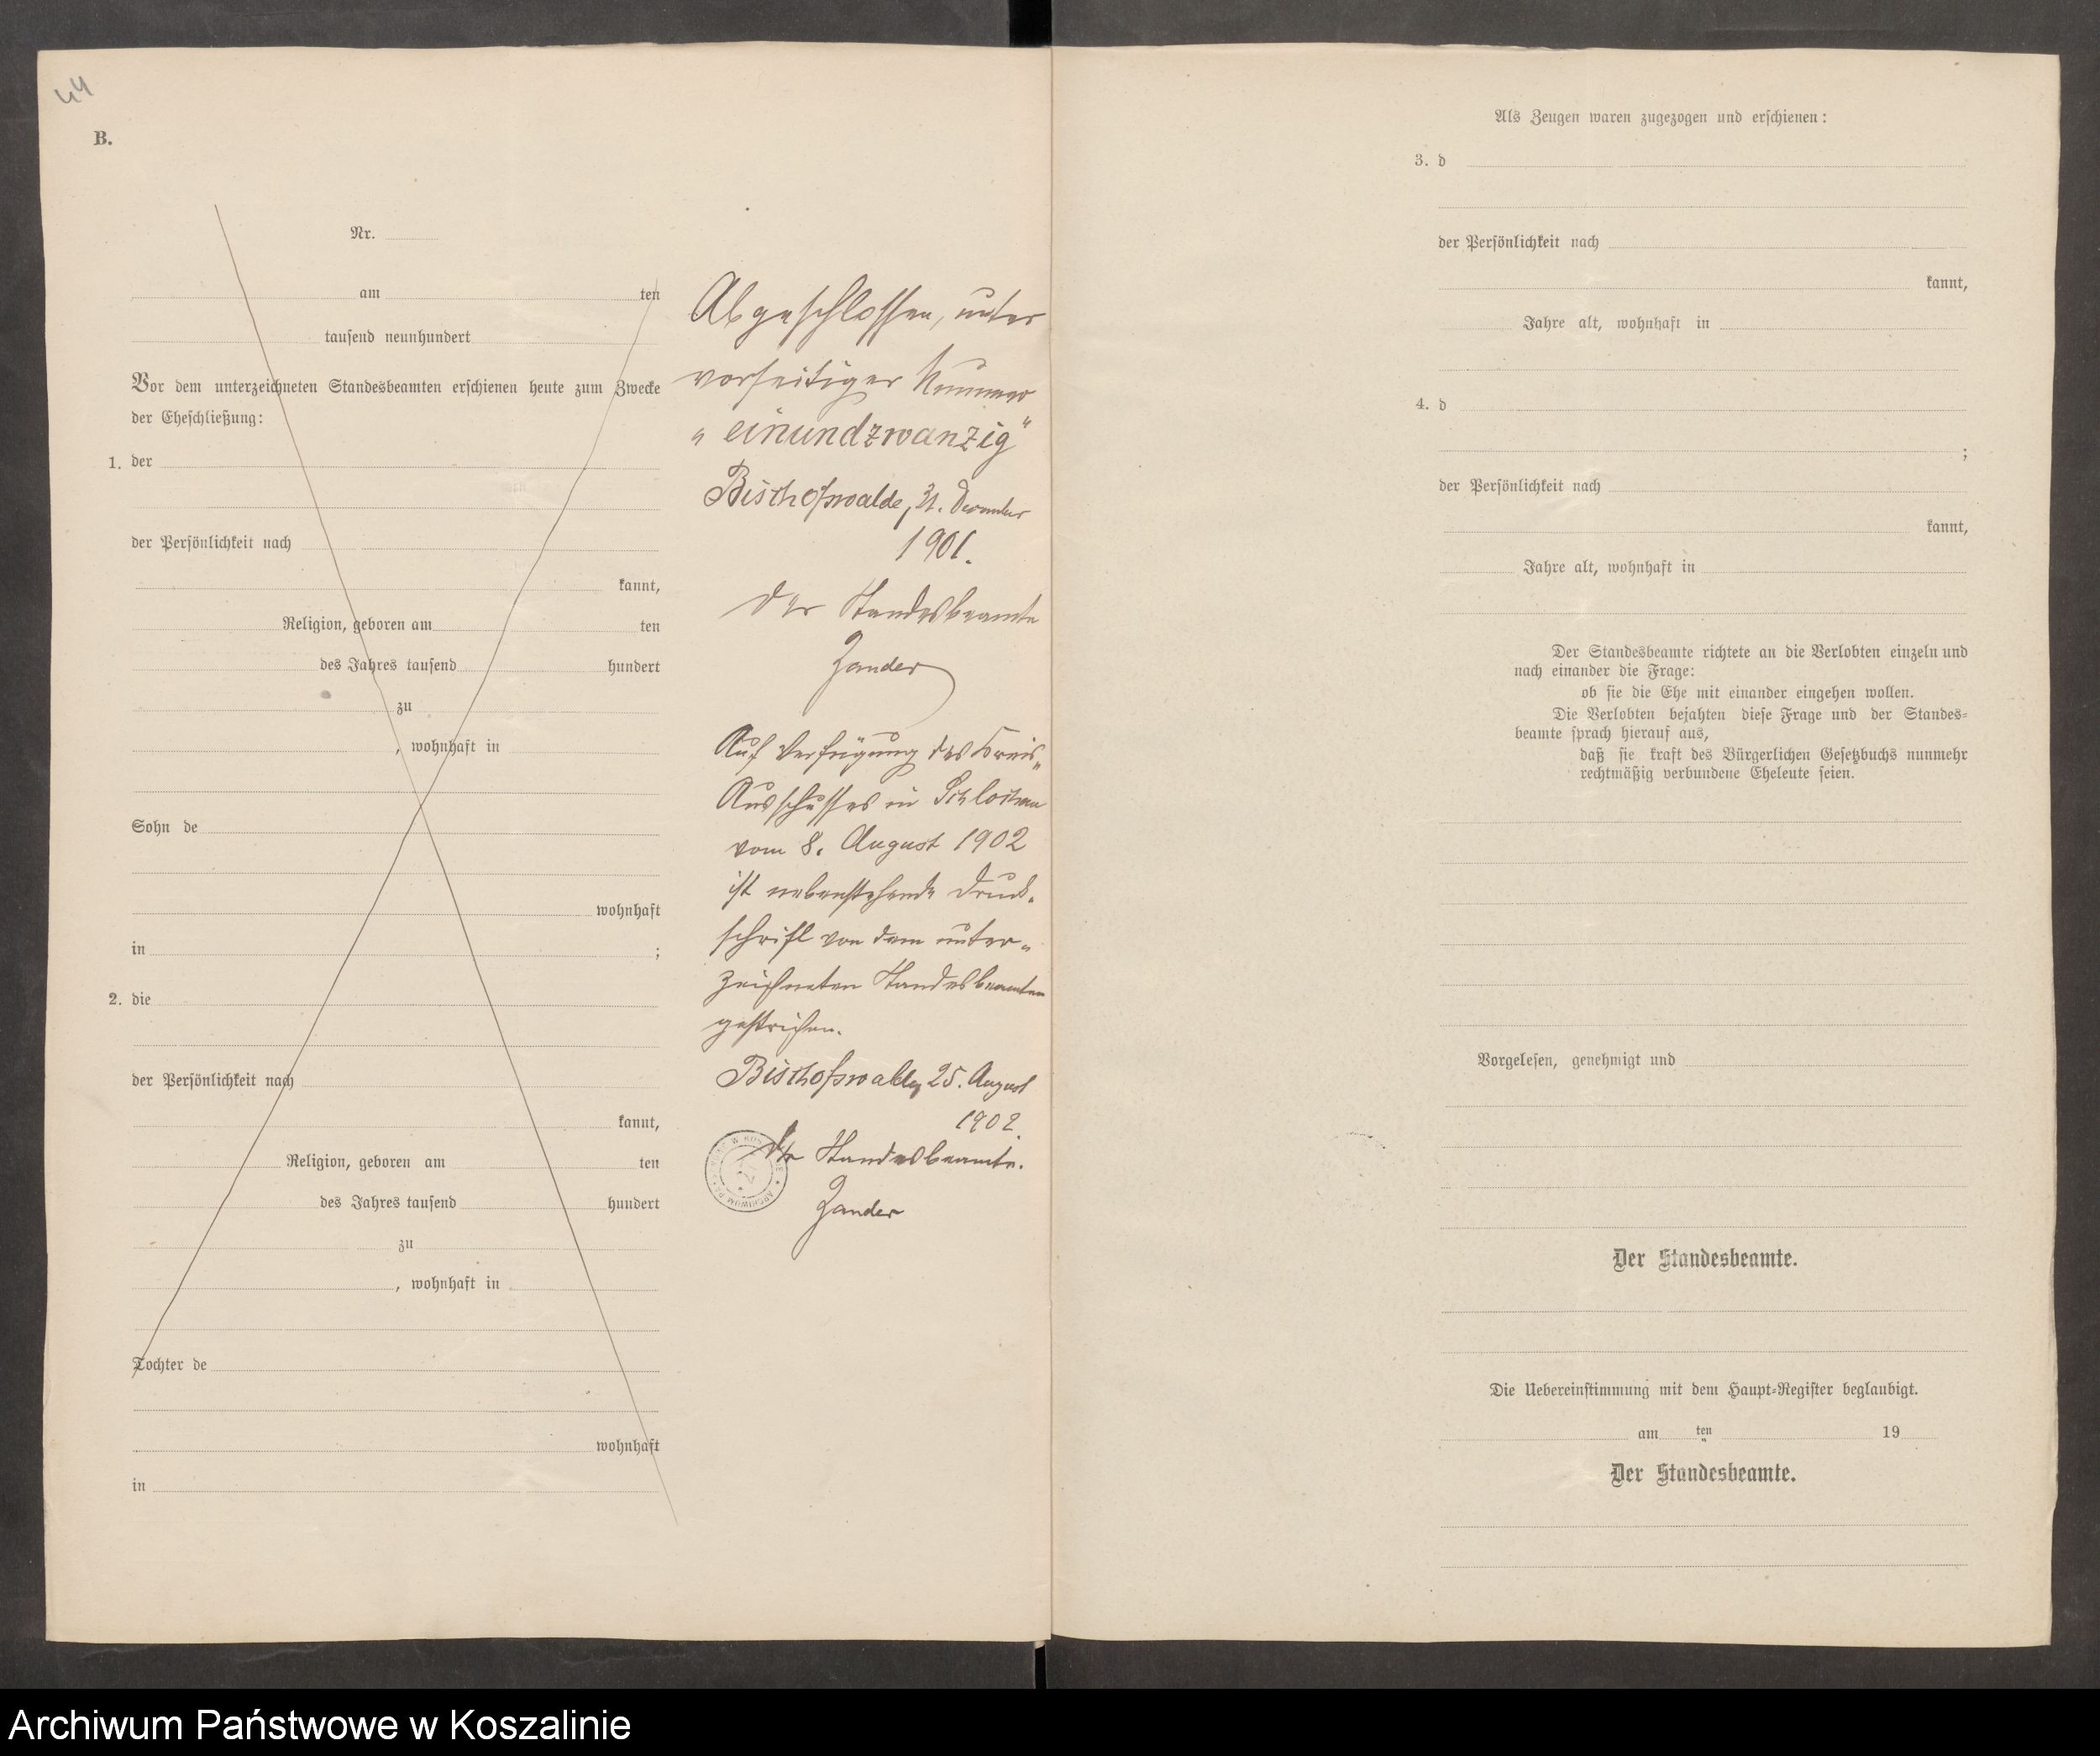 44
B.
Nr.
am ten
tausend neunhundert
Vor dem unterzeichneten Standesbeamten erschienen heute zum Zwecke
der Eheschließung:
1. der
der Persönlichkeit nach
kannt,
Religion, geboren am ten
des Jahres tausend hundert
zu
, wohnhaft in
Sohn de
wohnhaft
in ;
2. die
der Persönlichkeit nach
kannt,
Religion, geboren am ten
des Jahres tausend hundert
zu
, wohnhaft in
Tochter de
wohnhaft
in
Abgeschlossen, unter
vorseitiger Nummer
„einundzwanzig“
Bischofswalde, 31. Dezember
1901.
Der Standesbeamte
Zander
Auf Verfügung des Kreis-
Ausschusses in Schlochau
vom 8. August 1902
ist nebenstehende Druck-
schrift von dem unter-
zeichneten Standesbeamten
gestrichen.
Bischofswalde, 25. August
1902.
Der Standesbeamte.
Zander
ARCHIWUM
Als Zeugen waren zugezogen und erschienen:
3. d
der Persönlichkeit nach
kannt,
Jahre alt, wohnhaft in
4. d
;
der Persönlichkeit nach
kannt,
Jahre alt, wohnhaft in
Der Standesbeamte richtete an die Verlobten einzeln und
nach einander die Frage:
ob sie die Ehe mit einander eingehen wollen.
Die Verlobten bejahten diese Frage und der Standes-
beamte sprach hierauf aus,
daß sie kraft des Bürgerlichen Gesetzbuchs nunmehr
rechtmäßig verbundene Eheleute seien.
Vorgelesen, genehmigt und
Der Standesbeamte.
Die Uebereinstimmung mit dem Haupt-Register beglaubigt.
am ten 19
Der Standesbeamte.
Archiwum Państwowe w Koszalinie